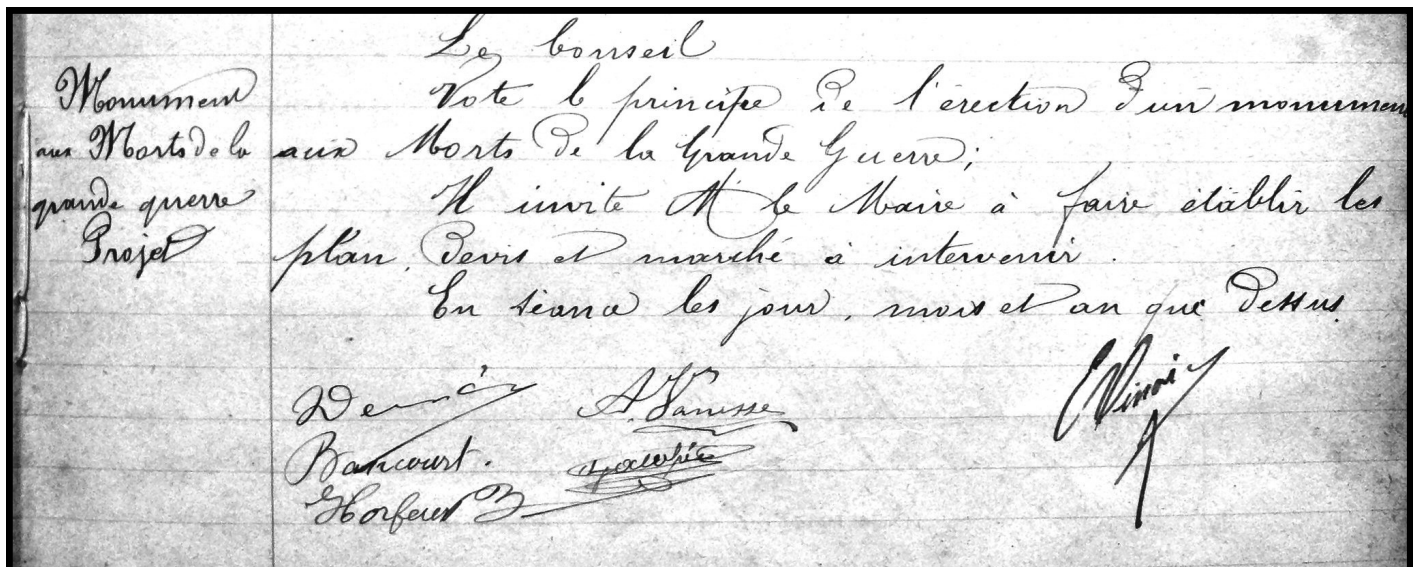 Le Conseil
Monument
aux Morts de la
grande guerre
Projet
Vote le principe de l'érection d'un monumen
aux Morts de la Grande Guerre ;
Il invite M le Maire à faire établir les
plan, devis et marché à intervenir.
En séance les jour, mois et an que dessus.
A. Vanesse
Bancourt.